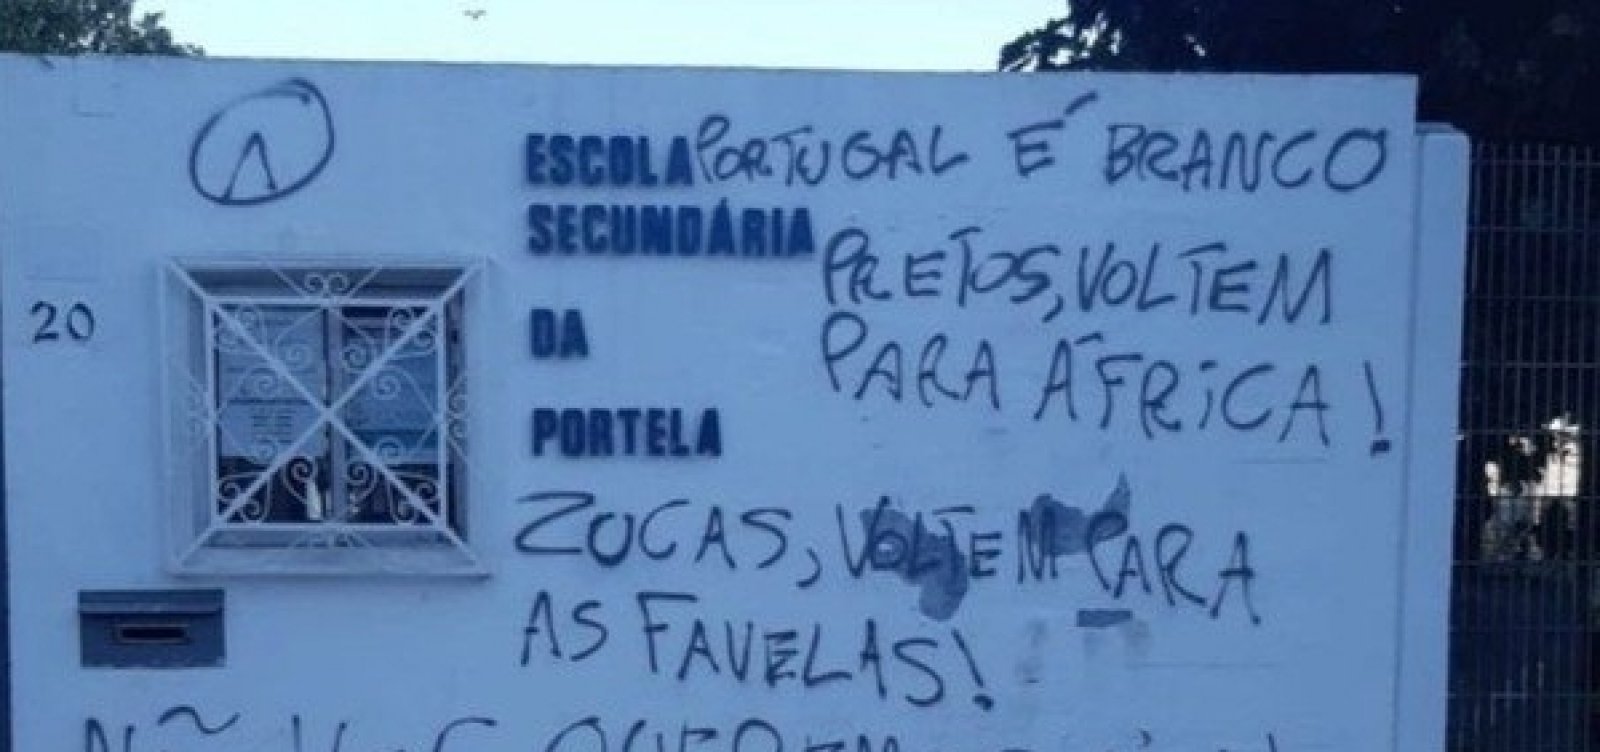 ESCOLA
SECUNDÁRIA
DA
PORTELA
20
PORTUGAL É BRANCO
PRETOS, VOLTEM
PARA ÁFRICA!
ZUCAS, VOLTEM PARA
AS FAVELAS!